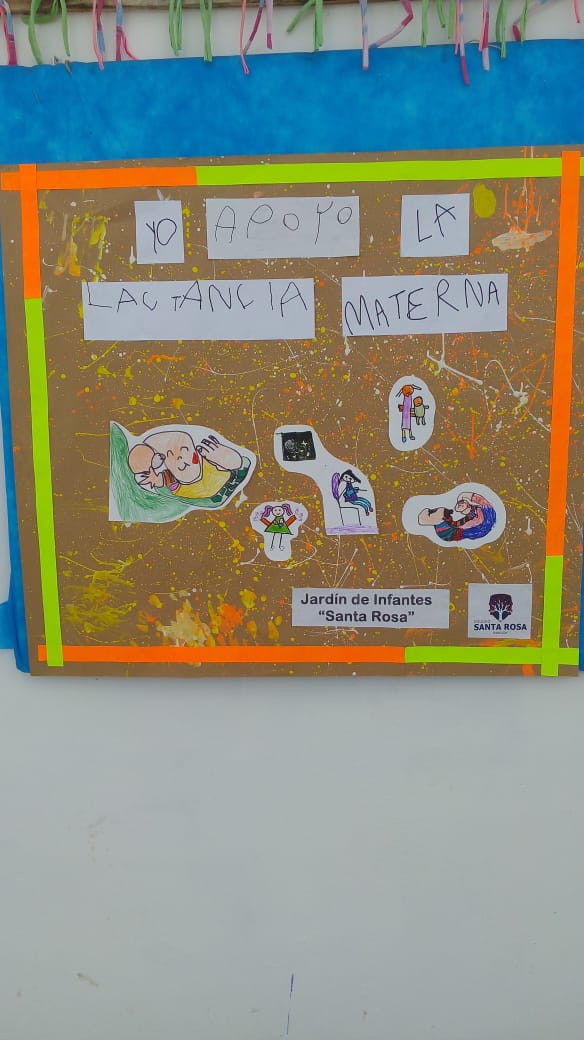 YO APOYO LA
LACTANCIA MATERNA
Jardín de Infantes
“Santa Rosa”
SANTA ROSA